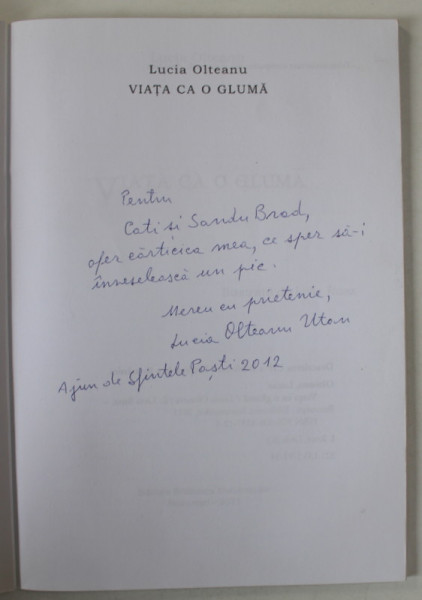 Lucia Olteanu
VIAȚA CA O GLUMĂ
Pentru
Cati și Sandu Brad,
ofer cărticica mea, ce sper să-i
înveselească un pic.
Mereu cu prietenie,
Lucia Olteanu Utan
Ajun de Sfintele Paști 2012